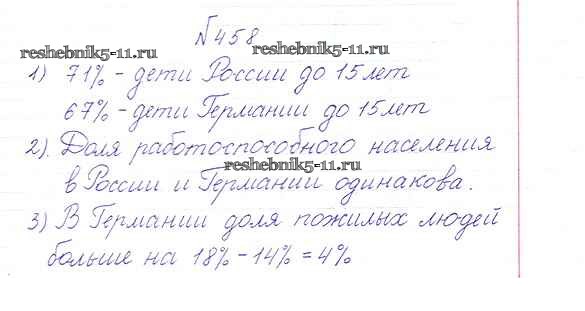 №458
reshebnik5-11.ru reshebnik5-11.ru
1) 71% - дети России до 15 лет
67% - дети Германии до 15 лет
2). Доля работоспособного населения
reshebnik5-11.ru
в России и Германии одинакова.
3) В Германии доля пожилых людей
больше на 18% - 14% = 4%